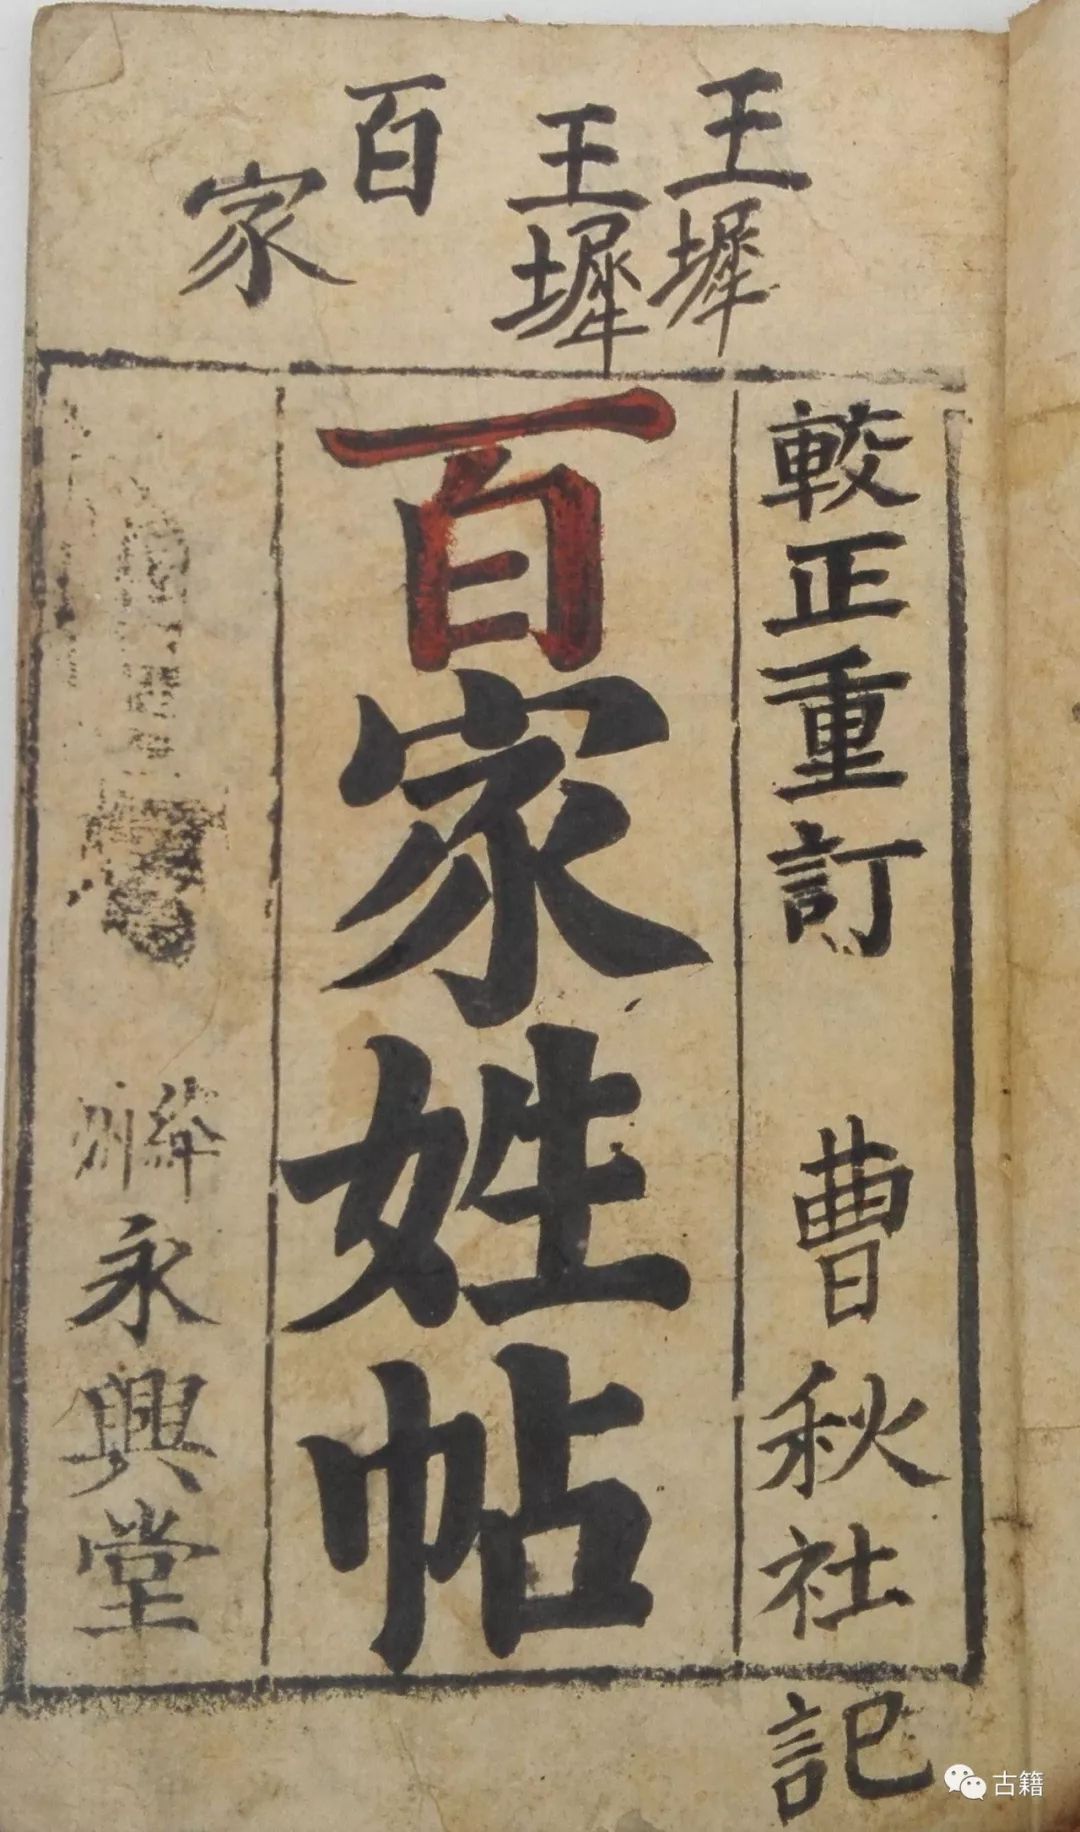 王墀
王墀
百家
較正重訂
曹秋社記
百家姓帖
絳州永興堂
古籍